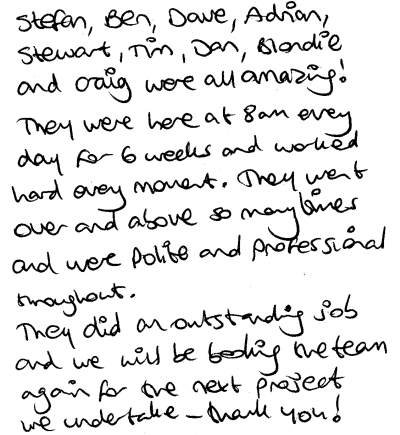 Stefan, Ben, Dave, Adrian,
Stewart, Tim, Dan, Blondie
and Craig were all amazing!
They were here at 8am every
day for 6 weeks and worked
hard every moment. They went
over and above so many times
and were polite and professional
throughout.
They did an outstanding job
and we will be booking the team
again for the next project
we undertake – thank you!